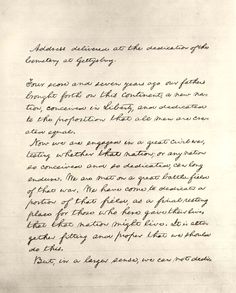 Address delivered at the dedication of the
Cemetery at Gettysburg.
Four score and seven years ago our fathers
brought forth on this continent, a new na-
tion, conceived in Liberty, and dedicated
to the proposition that all men are cre-
ated equal.
Now we are engaged in a great civil war,
testing whether that nation, or any nation
so conceived and so dedicated, can long
endure. We are met on a great battle-field
of that war. We have come to dedicate a
portion of that field, as a final resting
place for those who here gave their lives
that that nation might live. It is alto-
gether fitting and proper that we should
do this.
But, in a larger sense, we can not dedica-